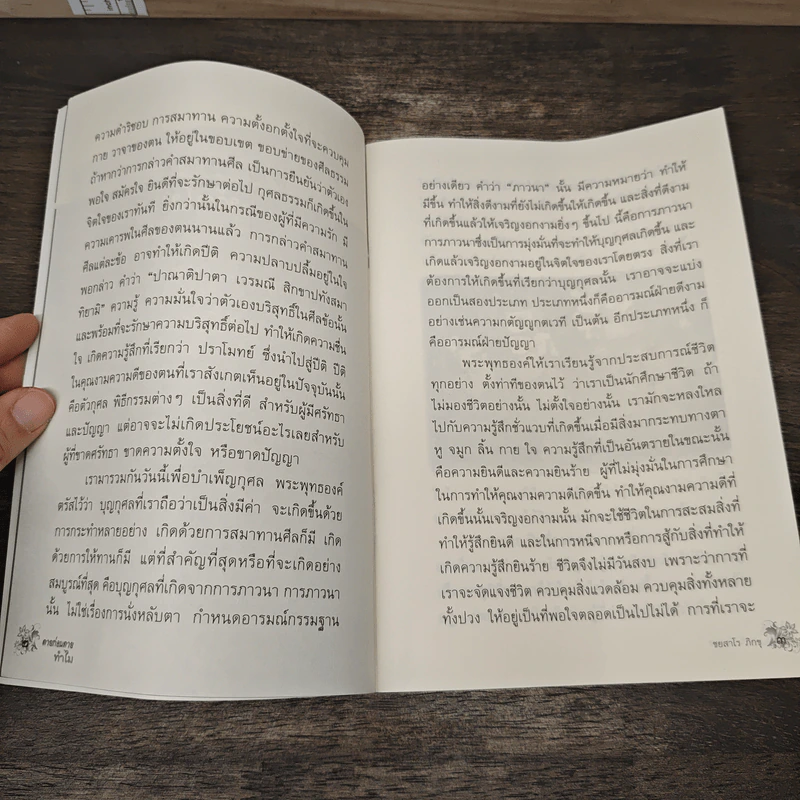 ความดำริชอบ การสมาทาน ความตั้งอกตั้งใจที่จะควบคุม
กาย วาจาของตน ให้อยู่ในขอบเขต ขอบข่ายของศีลธรรม
ถ้าหากว่าการกล่าวคำสมาทานศีล เป็นการยืนยันว่าตัวเอง
พอใจ สมัครใจ ยินดีที่จะรักษาต่อไป กุศลธรรมก็เกิดขึ้นใน
จิตใจของเราทันที ยิ่งกว่านั้นในกรณีของผู้ที่มีความรัก มี
ความเคารพในศีลของตนนานแล้ว การกล่าวคำสมาทาน
ศีลแต่ละข้อ อาจทำให้เกิดปีติ ความปลาบปลื้มอยู่ในใจ
พอกล่าว คำว่า “ปาณาติปาตา เวรมณี สิกขาปทังสมา
ทิยามิ” ความรู้ ความมั่นใจว่าตัวเองบริสุทธิ์ในศีลข้อนั้น
และพร้อมที่จะรักษาความบริสุทธิ์ต่อไป ทำให้เกิดความชื่น
ใจ เกิดความรู้สึกที่เรียกว่า ปราโมทย์ ซึ่งนำไปสู่ปีติ ปีติ
ในคุณงามความดีของตนที่เราสังเกตเห็นอยู่ในปัจจุบันนั้น
คือตัวกุศล พิธีกรรมต่างๆ เป็นสิ่งที่ดี สำหรับผู้มีศรัทธา
และปัญญา แต่อาจจะไม่เกิดประโยชน์อะไรเลยสำหรับ
ผู้ที่ขาดศรัทธา ขาดความตั้งใจ หรือขาดปัญญา
เรามารวมกันวันนี้เพื่อบำเพ็ญกุศล พระพุทธองค์
ตรัสไว้ว่า บุญกุศลที่เราถือว่าเป็นสิ่งมีค่า จะเกิดขึ้นด้วย
การกระทำหลายอย่าง เกิดด้วยการสมาทานศีลก็มี เกิด
ด้วยการให้ทานก็มี แต่ที่สำคัญที่สุดหรือที่จะเกิดอย่าง
สมบูรณ์ที่สุด คือบุญกุศลที่เกิดจากการภาวนา การภาวนา
นั้น ไม่ใช่เรื่องการนั่งหลับตา กำหนดอารมณ์กรรมฐาน
ตายก่อนตาย
ทำไม
อย่างเดียว คำว่า “ภาวนา” นั้น มีความหมายว่า ทำให้
มีขึ้น ทำให้สิ่งดีงามที่ยังไม่เกิดขึ้นให้เกิดขึ้น และสิ่งที่ดีงาม
ที่เกิดขึ้นแล้วให้เจริญงอกงามยิ่งๆ ขึ้นไป นี้คือการภาวนา
การภาวนาซึ่งเป็นการมุ่งมั่นที่จะทำให้บุญกุศลเกิดขึ้น และ
เกิดแล้วเจริญงอกงามอยู่ในจิตใจของเราโดยตรง สิ่งที่เรา
ต้องการให้เกิดขึ้นที่เรียกว่าบุญกุศลนั้น เราอาจจะแบ่ง
ออกเป็นสองประเภท ประเภทหนึ่งก็คืออารมณ์ฝ่ายดีงาม
อย่างเช่นความกตัญญูกตเวที เป็นต้น อีกประเภทหนึ่ง ก็
คืออารมณ์ฝ่ายปัญญา
พระพุทธองค์ให้เราเรียนรู้จากประสบการณ์ชีวิต
ทุกอย่าง ตั้งท่าทีของตนไว้ ว่าเราเป็นนักศึกษาชีวิต ถ้า
ไม่มองชีวิตอย่างนั้น ไม่ตั้งใจอย่างนั้น เรามักจะหลงใหล
ไปกับความรู้สึกชั่วแวบที่เกิดขึ้นเมื่อมีสิ่งมากระทบทางตา
หู จมูก ลิ้น กาย ใจ ความรู้สึกที่เป็นอันตรายในขณะนั้น
คือความยินดีและความยินร้าย ผู้ที่ไม่มุ่งมั่นในการศึกษา
ในการทำให้คุณงามความดีเกิดขึ้น ทำให้คุณงามความดีที่
เกิดขึ้นนั้นเจริญงอกงามนั้น มักจะใช้ชีวิตในการสะสมสิ่งที่
ทำให้รู้สึกยินดี และในการหนีจากหรือการสู้กับสิ่งที่ทำให้
เกิดความรู้สึกยินร้าย ชีวิตจึงไม่มีวันสงบ เพราะว่าการที่
เราจะจัดแจงชีวิต ควบคุมสิ่งแวดล้อม ควบคุมสิ่งทั้งหลาย
ทั้งปวง ให้อยู่เป็นที่พอใจตลอดเป็นไปไม่ได้ การที่เราจะ
ชยสาโร ภิกขุ